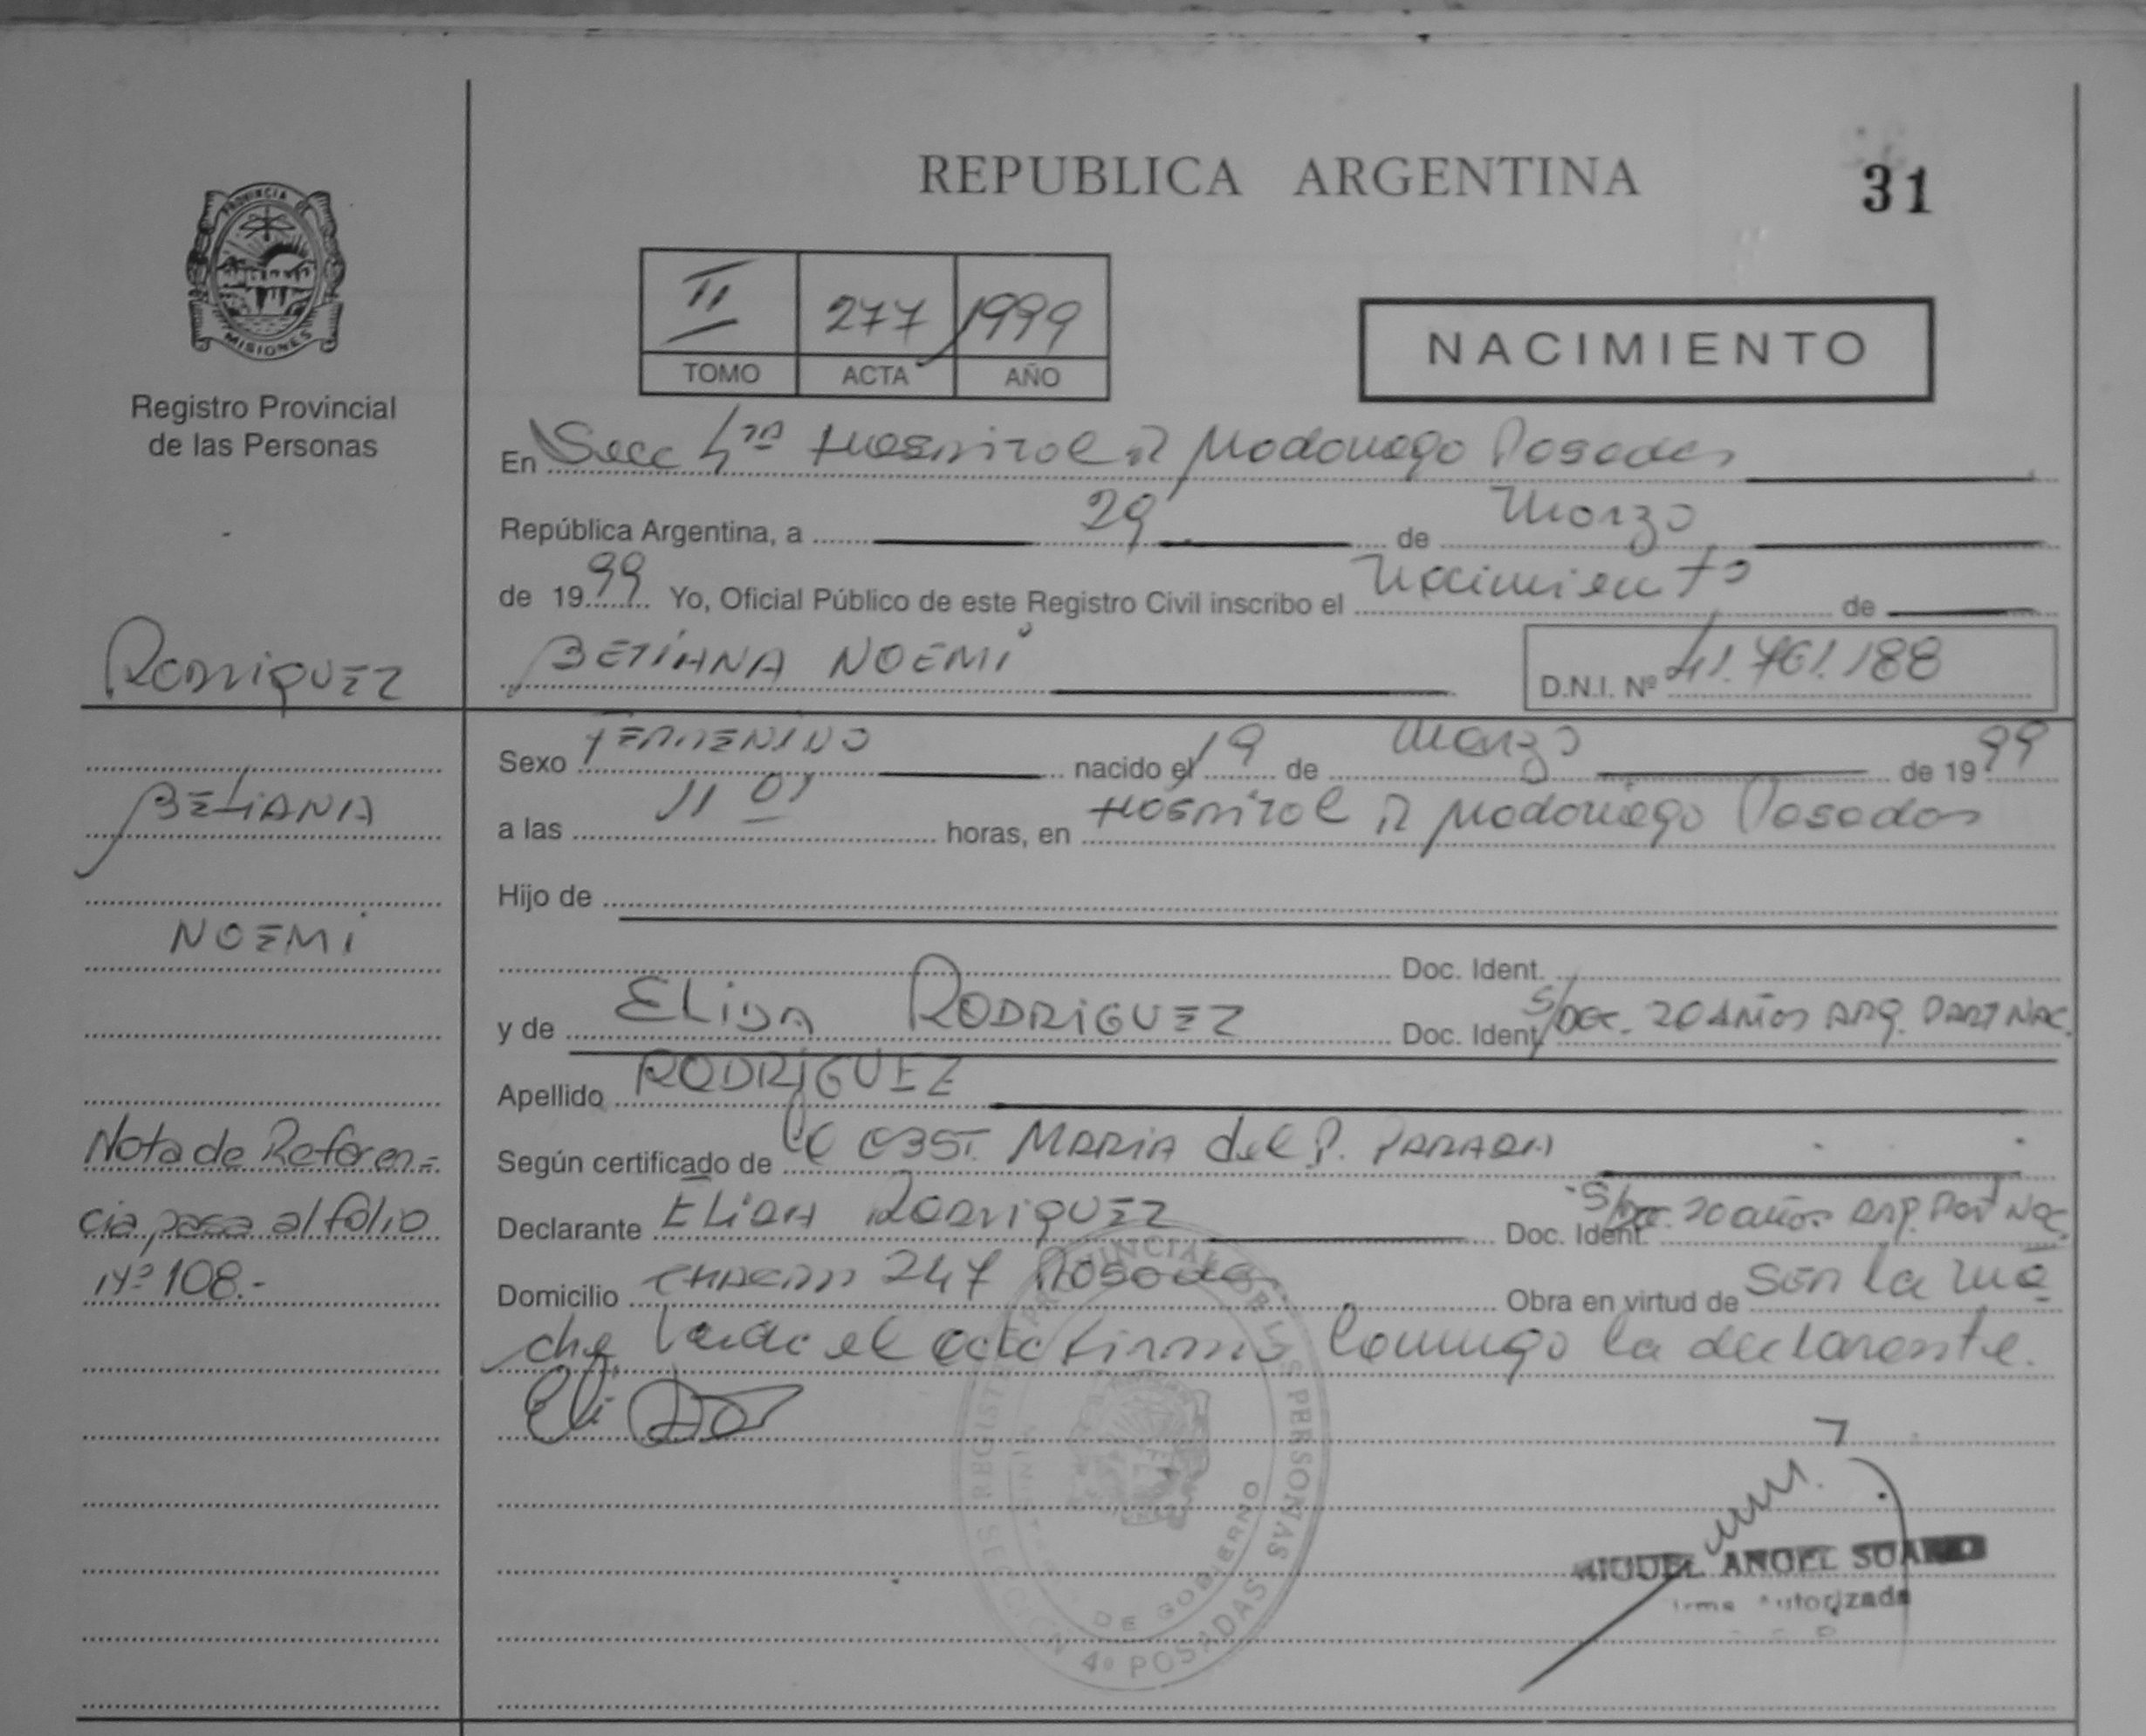 REPUBLICA ARGENTINA
31
PROVINCIA DE
MISIONES
Registro Provincial
de las Personas
II 277 1999
TOMO ACTA AÑO
NACIMIENTO
En Secc 4ta Hospital R Madariaga Posadas
República Argentina, a 29 de Marzo
de 1999 Yo, Oficial Público de este Registro Civil inscribo el Nacimiento de
BETIANA NOEMI
D.N.I. Nº 41.761.188
RODRIGUEZ
BETIANA
NOEMI
Nota de Referen=
cia pasa al folio
Nº 108.-
Sexo FEMENINO nacido el 19 de Marzo de 1999
a las 11 01 horas, en Hospital R Madariaga Posadas
Hijo de
Doc. Ident.
y de ELIDA RODRIGUEZ Doc. Ident. S/Doc. 20 AÑOS ARG. PART NAC.
Apellido RODRIGUEZ
Según certificado de OBST. MARIA del P. PARADA
Declarante ELIDA RODRIGUEZ Doc. Ident. S/Doc. 20 años ARG. Part Nac.
Domicilio 247 Posadas Obra en virtud de ser la ma
dre el acta firma conmigo la declarante.
REGISTRO PROVINCIAL DE LAS PERSONAS
MINISTERIO DE GOBIERNO
SECCION 4º POSADAS
MIGUEL ANGEL
Firma Autorizada